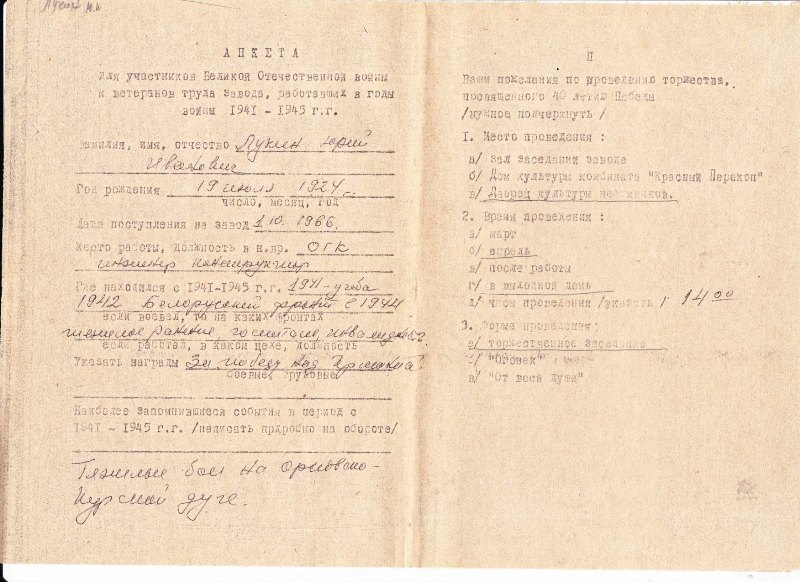 Лукин Ю.И.
АНКЕТА
Для участников Великой Отечественной войны
и ветеранов труда завода, работавших в годы
войны 1941 - 1945 г.г.
Фамилия, имя, отчество Лукин Юрий
Иванович
Год рождения 19 июля 1924
число, месяц, год
Дата поступления на завод 1.10.1966.
Место работы, должность в н.вр. ОГК
инженер конструктор
Где находился с 1941-1945 г.г. 1941-учеба
1942 Белорусский фронт с 1944
если воевал, то на каких фронтах
тяжелое ранение, госпиталь,
если работал, в каком цехе, должность
Указать награды За победу над Германией
боевые, трудовые
Наиболее запомнившиеся события в период с
1941 - 1945 г.г. /написать подробно на обороте/
Тяжелые бои на Орловско-
Курской дуге.
П
Ваши пожелания по проведению торжества,
посвященного 40 летию Победы
/нужное подчеркнуть /
1. Место проведения :
а/ зал заседаний завода
б/ Дом культуры комбината "Красный Перекоп"
в/ Дворец культуры нефтяников.
2. Время проведения :
а/ март
б/ апрель
в/ после работы
г/ в выходной день
д/ часы проведения /указать / 14 00
3. Форма проведения:
а/ торжественное заседание
б/ "Огонек"
в/ "От всей души"